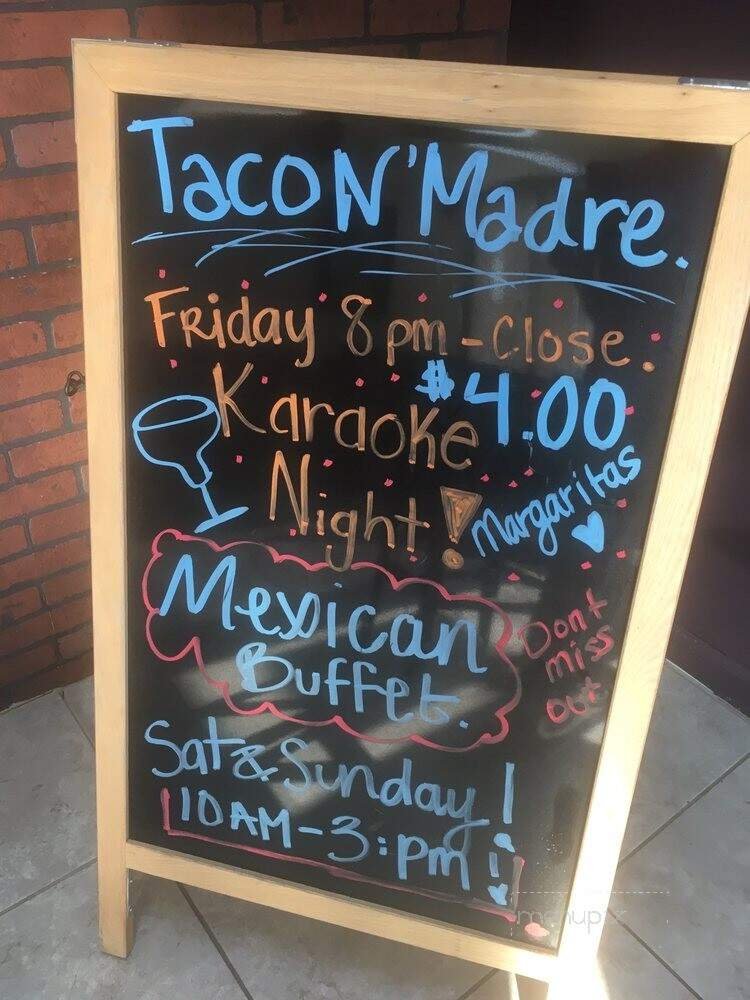 Taco N' Madre.
Friday 8 pm - Close.
Karaoke $4.00
Night! Margaritas
Mexican
Buffet.
Don't
miss
out
Sat & Sunday!
10 AM - 3:pm!
menupix